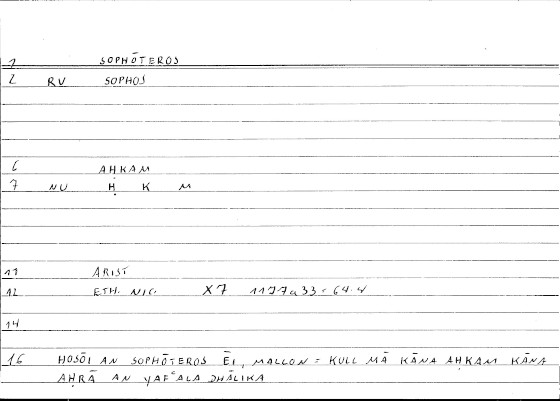 1 SOPHŌTEROS
2 RV SOPHOS
6 AḤKAM
7 NU Ḥ K M
11 ARIST
12 ETH. NIC. X7 1177a33 = 64.4
14
16 HOSŌI AN SOPHŌTEROS ĒI, MALLON = KULL MĀ KĀNA AḤKAM KĀNA
AḤRĀ AN YAFʿALA DHĀLIKA